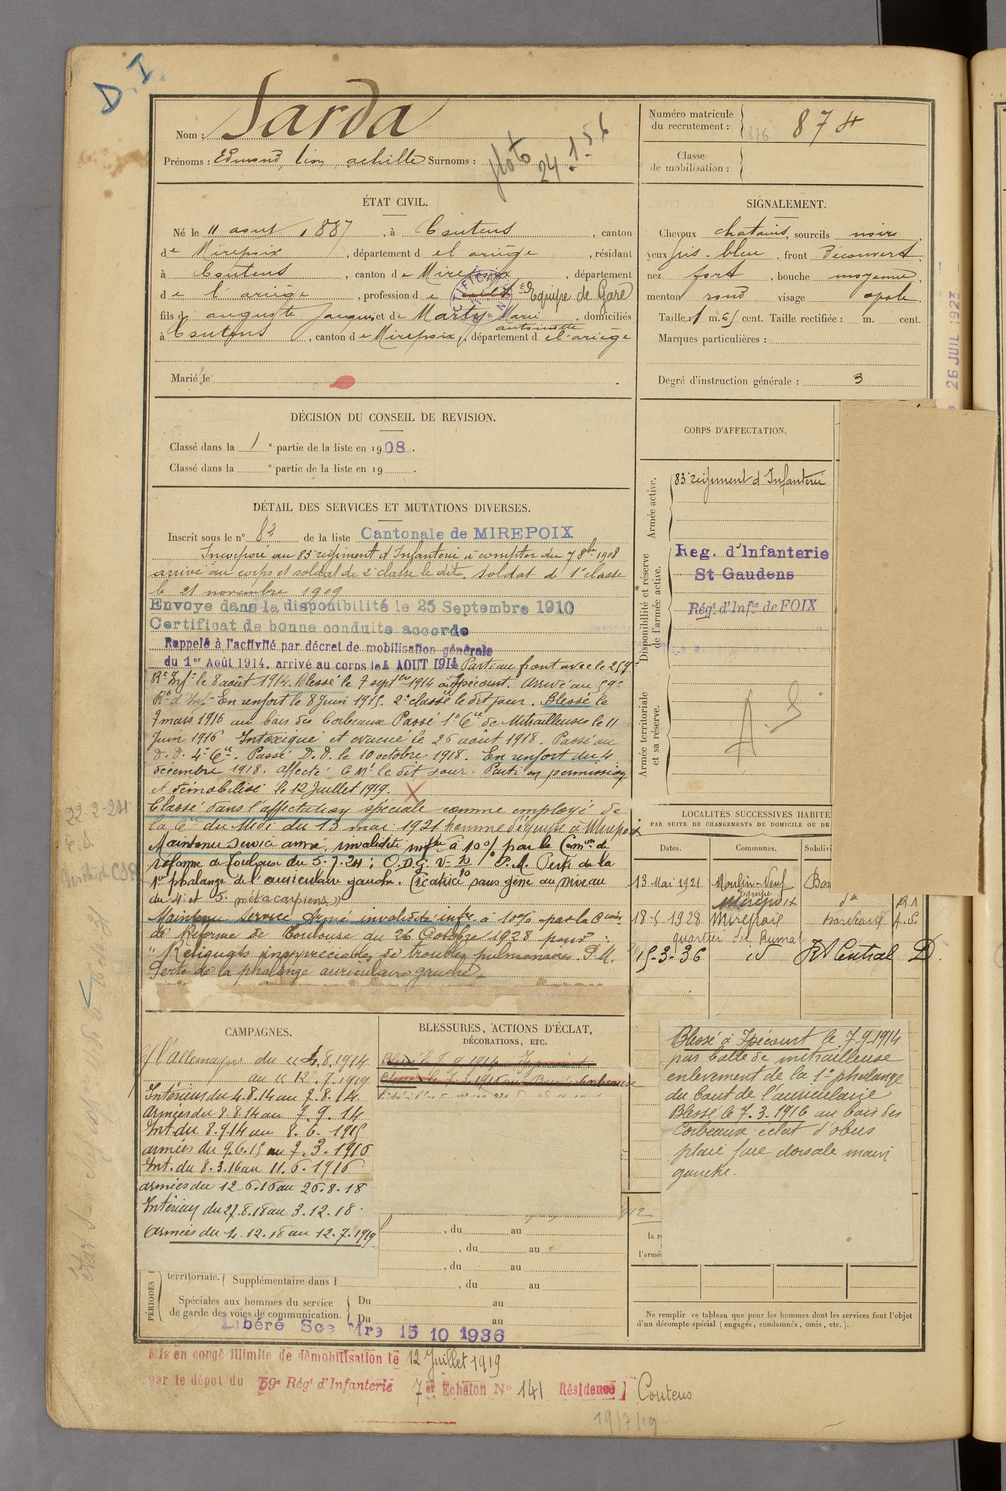 D. I.
Nom : Sarda
Prénoms : Edmond, Léon achille Surnoms :
photo 24.1.56
Numéro matricule du recrutement : 874
Classe de mobilisation :
ÉTAT CIVIL.
Né le 11 aout 1887, à Coutens, canton
de Mirepoix, département d el ariège, résidant
à Coutens, canton de Mirepoix, département
de l'ariège, profession de Equipe de Gare
fils d auguste Jacques et de Marty Marie antoinette, domiciliés
à Coutens, canton de Mirepoix, département d el'ariège
Marié le
SIGNALEMENT.
Cheveux chatains, sourcils noirs
yeux gris-bleu, front découvert
nez fort, bouche moyenne
menton rond visage ovale
Taille : 1 m. 65 cent. Taille rectifiée : m. cent.
Marques particulières :
Degré d'instruction générale : 3
26 JUIL 1923
DÉCISION DU CONSEIL DE REVISION.
Classé dans la 1e partie de la liste en 1908.
Classé dans la e partie de la liste en 19 .
CORPS D'AFFECTATION.
Armée active.
83e régiment d'Infanterie
Disponibilité et réserve de l'armée active.
Reg. d'Infanterie
St Gaudens
Régt d'Infie de FOIX
Armée territoriale et sa réserve.
DÉTAIL DES SERVICES ET MUTATIONS DIVERSES.
Inscrit sous le n° 82 de la liste Cantonale de MIREPOIX
Incorporé au 83 régiment d'Infanterie à compter du 7 8bre 1908
arrivé au corps et soldat de 2e classe le dit, soldat de 1e classe
le 21 novembre 1909
Envoyé dans la disponibilité le 25 Septembre 1910
Certificat de bonne conduite accordé
Rappelé à l'activité par décret de mobilisation générale
du 1er Août 1914, arrivé au corps le 4 AOUT 1914 Parti au front avec le
Rt Infie le 8 août 1914. Blessé le 7 septbre 1914 à Ipécourt. Arrivé au 59e
Rt d'Infie En renfort le 8 Juin 1915. 2e classe le dit jour. Blessé le
7 mars 1916 au bois des Corbeaux Passé 1e Cie de Mitrailleuses le 11
Juin 1916 Intoxiqué et évacué le 26 août 1918. Passé au
D.D. 4e Cie. Passé D.D. le 10 octobre 1918. En renfort du 4
décembre 1918. affecté C M1 le dit jour. Parti en permission
et démobilisé le 12 Juillet 1919.
Classé dans l'affectation spéciale comme employé de
la Cie du Midi du 13 mai 1921 homme d'équipe à Mirepoix
Maintenu service armé, invalidité infre à 10% par la Comon de
réforme de Toulouse du 5.7.24 : Perte de la
1re phalange de l'auriculaire gauche. Cicatrice sans gêne au niveau
du 4 et 5e métacarpiens
Maintenu service Armé invalidité infre à 10% par la Comon
de Réforme de Toulouse du 26 Octobre 1928 pour :
"Reliquats inappréciables de troubles pulmonaires. P.M.
Perte de la phalange auriculaire gauche
22-2-24
LOCALITÉS SUCCESSIVES HABITÉ
PAR SUITE DE CHANGEMENTS DE DOMICILE OU DE
Dates. Communes. Subdivi
13 Mai 1921 Moulin-Neuf
Mirepoix do
18-5-1928 Mirepoix
quartier du Rumat
15-3-36 id Central D.
CAMPAGNES.
c/ l'Allemagne du 4.8.1914
au 12.7.1919
Intérieur du 4.8.14 au 7.8.14
Armées du 8.8.14 au 7.9.14
Int. du 8.9.14 au 8.6.1915
armées du 9.6.15 au 7.3.1916
Int. du 8.3.16 au 11.6.1916
armées du 12.6.16 au 26.8.18
Intérieur du 27.8.18 au 3.12.18
Armées du 4.12.18 au 12.7.1919
BLESSURES, ACTIONS D'ÉCLAT,
DÉCORATIONS, ETC.
Blessé à Ipécourt le 7.9.1914
par balle de mitrailleuse
enlèvement de la 1re phalange
du bout de l'auriculaire
Blessé le 7.3.1916 au bois des
Corbeaux éclat d'obus
plaie face dorsale main
gauche.
, du au
, du au
, du au
, du au
PÉRIODES
territoriale. Supplémentaire dans l
Spéciales aux hommes du service de garde des voies de communication. Du au
Du au
Libéré Sce Mre 15 10 1936
Ne remplir ce tableau que pour les hommes dont les services font l'objet
d'un décompte spécial (engagés, condamnés, omis, etc.).
Mis en congé illimité de démobilisation le 12 Juillet 1919
par le dépôt du 59e Régt d'Infanterie 7e Echelon N° 141 Résidence Coutens
19/7/19